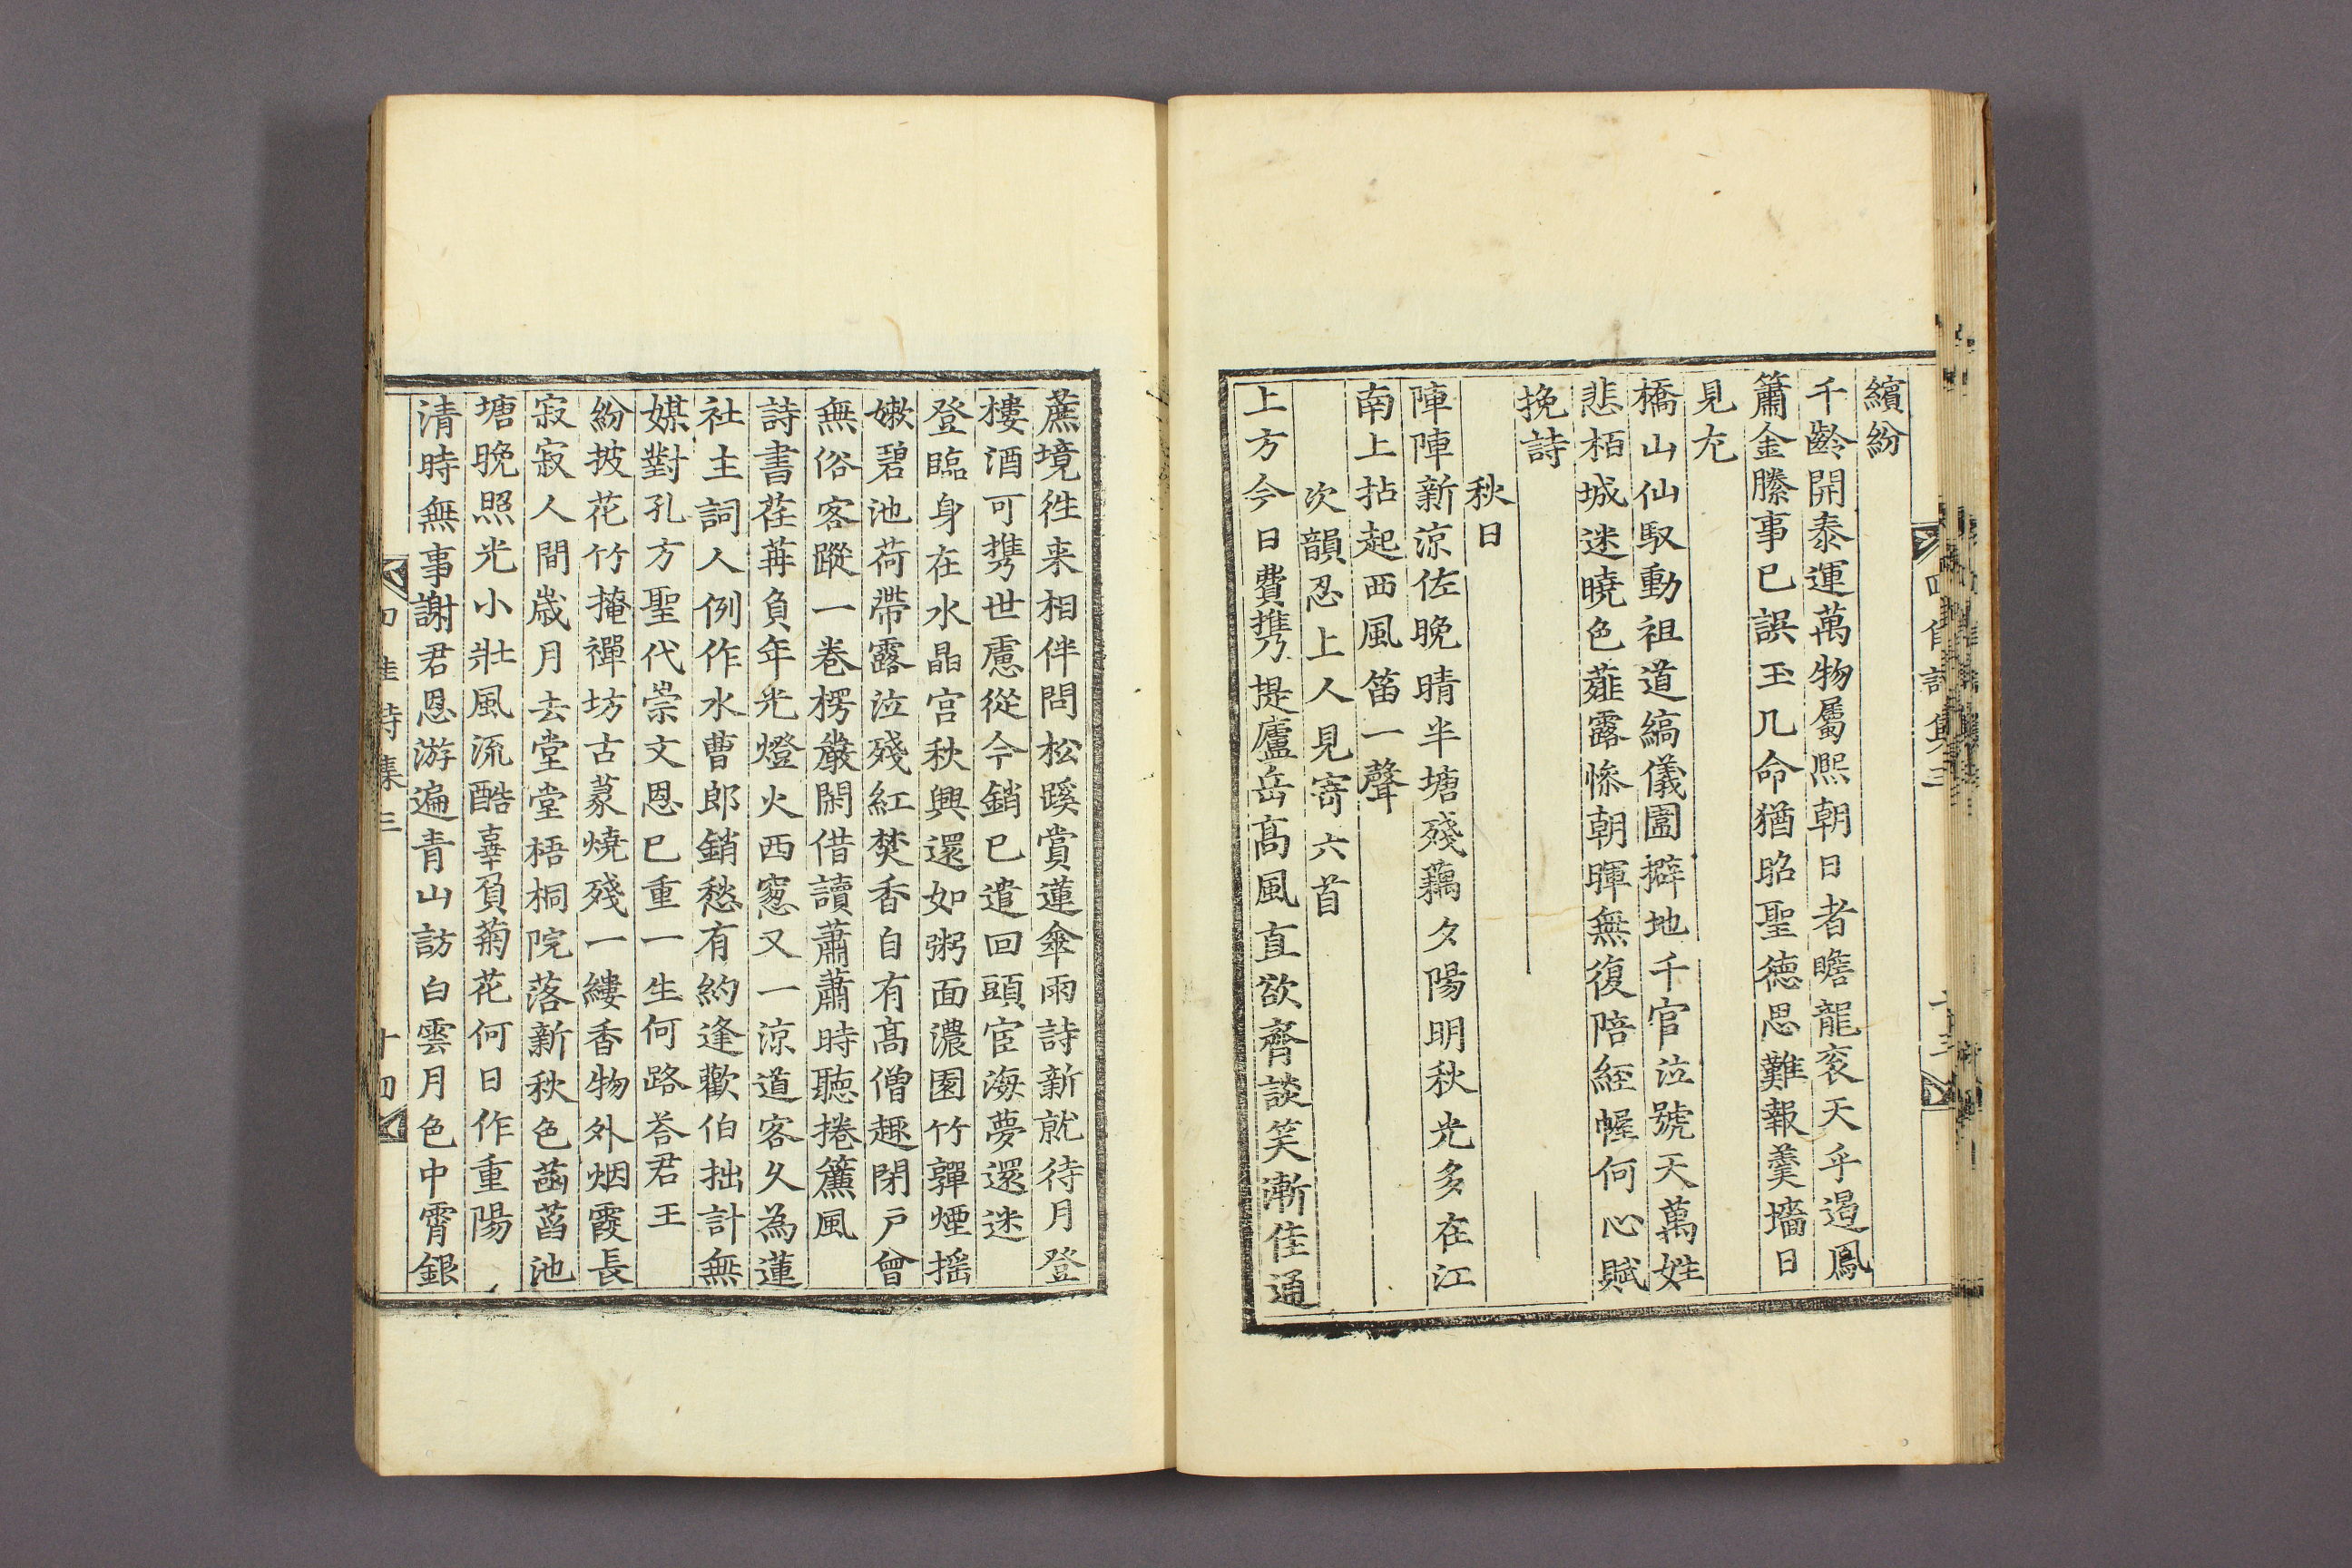 繽紛
千齡開泰運萬物屬熙朝日者瞻龍衮天乎遏鳳
簫金縢事已誤玉几命猶昭聖德思難報羹墻日
見尢
橋山仙馭動祖道縞儀圖擗地千官泣號天萬姓
悲栢城迷曉色薤露慘朝暉無復陪經幄何心賦
挽詩
秋日
陣陣新涼佐晚晴半塘殘藕夕陽明秋光多在江
南上拈起西風笛一聲
次韻忍上人見寄六首
上方今日費携提廬岳高風直欲齊談笑漸佳通
蔗境徃来相伴問松蹊賞蓮傘雨詩新就待月登
樓酒可携世慮從今銷已遣回頭宦海夢還迷
登臨身在水晶宮秋興還如粥面濃園竹嚲煙摇
嫰碧池荷帶露泣殘紅焚香自有高僧趣閉戸曾
無俗客蹤一卷楞嚴閑借讀蕭蕭時聽捲簾風
詩書荏苒負年光燈火西窓又一涼道客久為蓮
社主詞人例作水曹郎銷愁有約逢歡伯拙計無
媒對孔方聖代崇文恩已重一生何路答君王
紛披花竹掩禪坊古篆燒殘一縷香物外烟霞長
寂寂人間歲月去堂堂梧桐院落新秋色菡萏池
塘晚照光小壯風流酷辜負菊花何日作重陽
清時無事謝君恩游遍青山訪白雲月色中霄銀
四佳詩集三
十四
四佳詩集三
十三